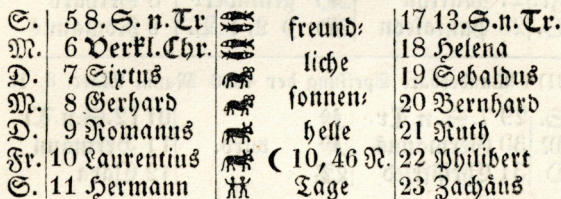 S. 5 8. S. n. Tr. freund- 17 13. S. n. Tr.
M. 6 Verkl. Chr. liche 18 Helena
D. 7 Sixtus 19 Sebaldus
M. 8 Gerhard sonnen- 20 Bernhard
D. 9 Romanus helle 21 Ruth
Fr. 10 Laurentius ☾ 10,46 N. 22 Philibert
S. 11 Hermann Tage 23 Zachäus